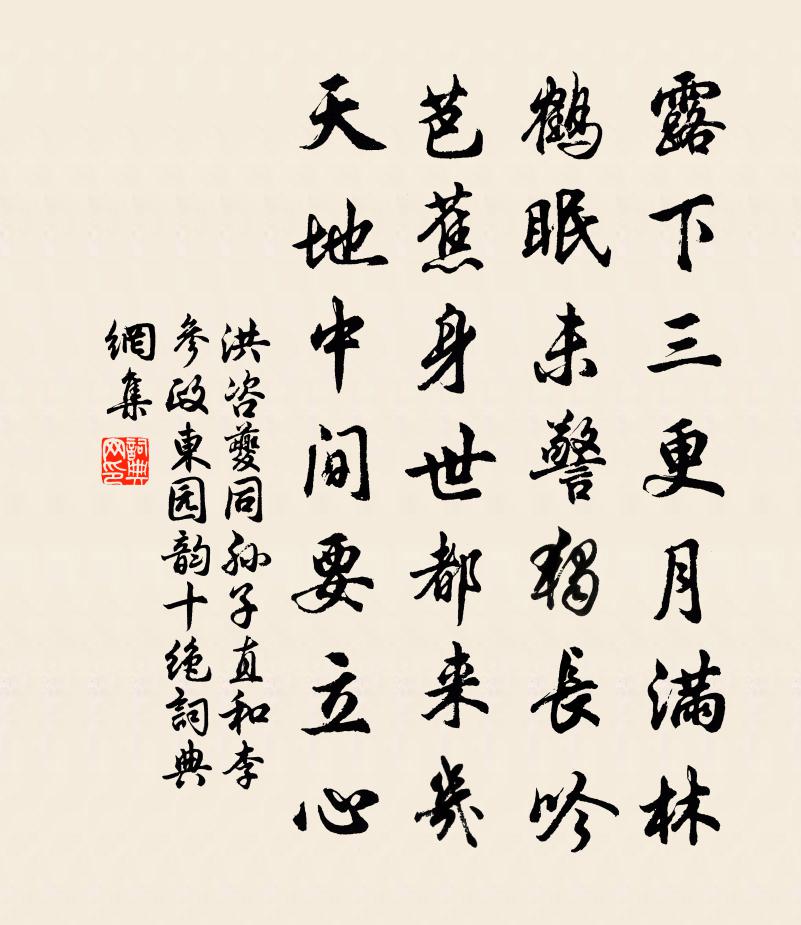 露下三更月满林
鹤眠未警独長吟
芭蕉身世都来幾
天地中间要立心
洪咨夔同孙子直和李
參政東园韵十绝詞典
網集
詞典
网印